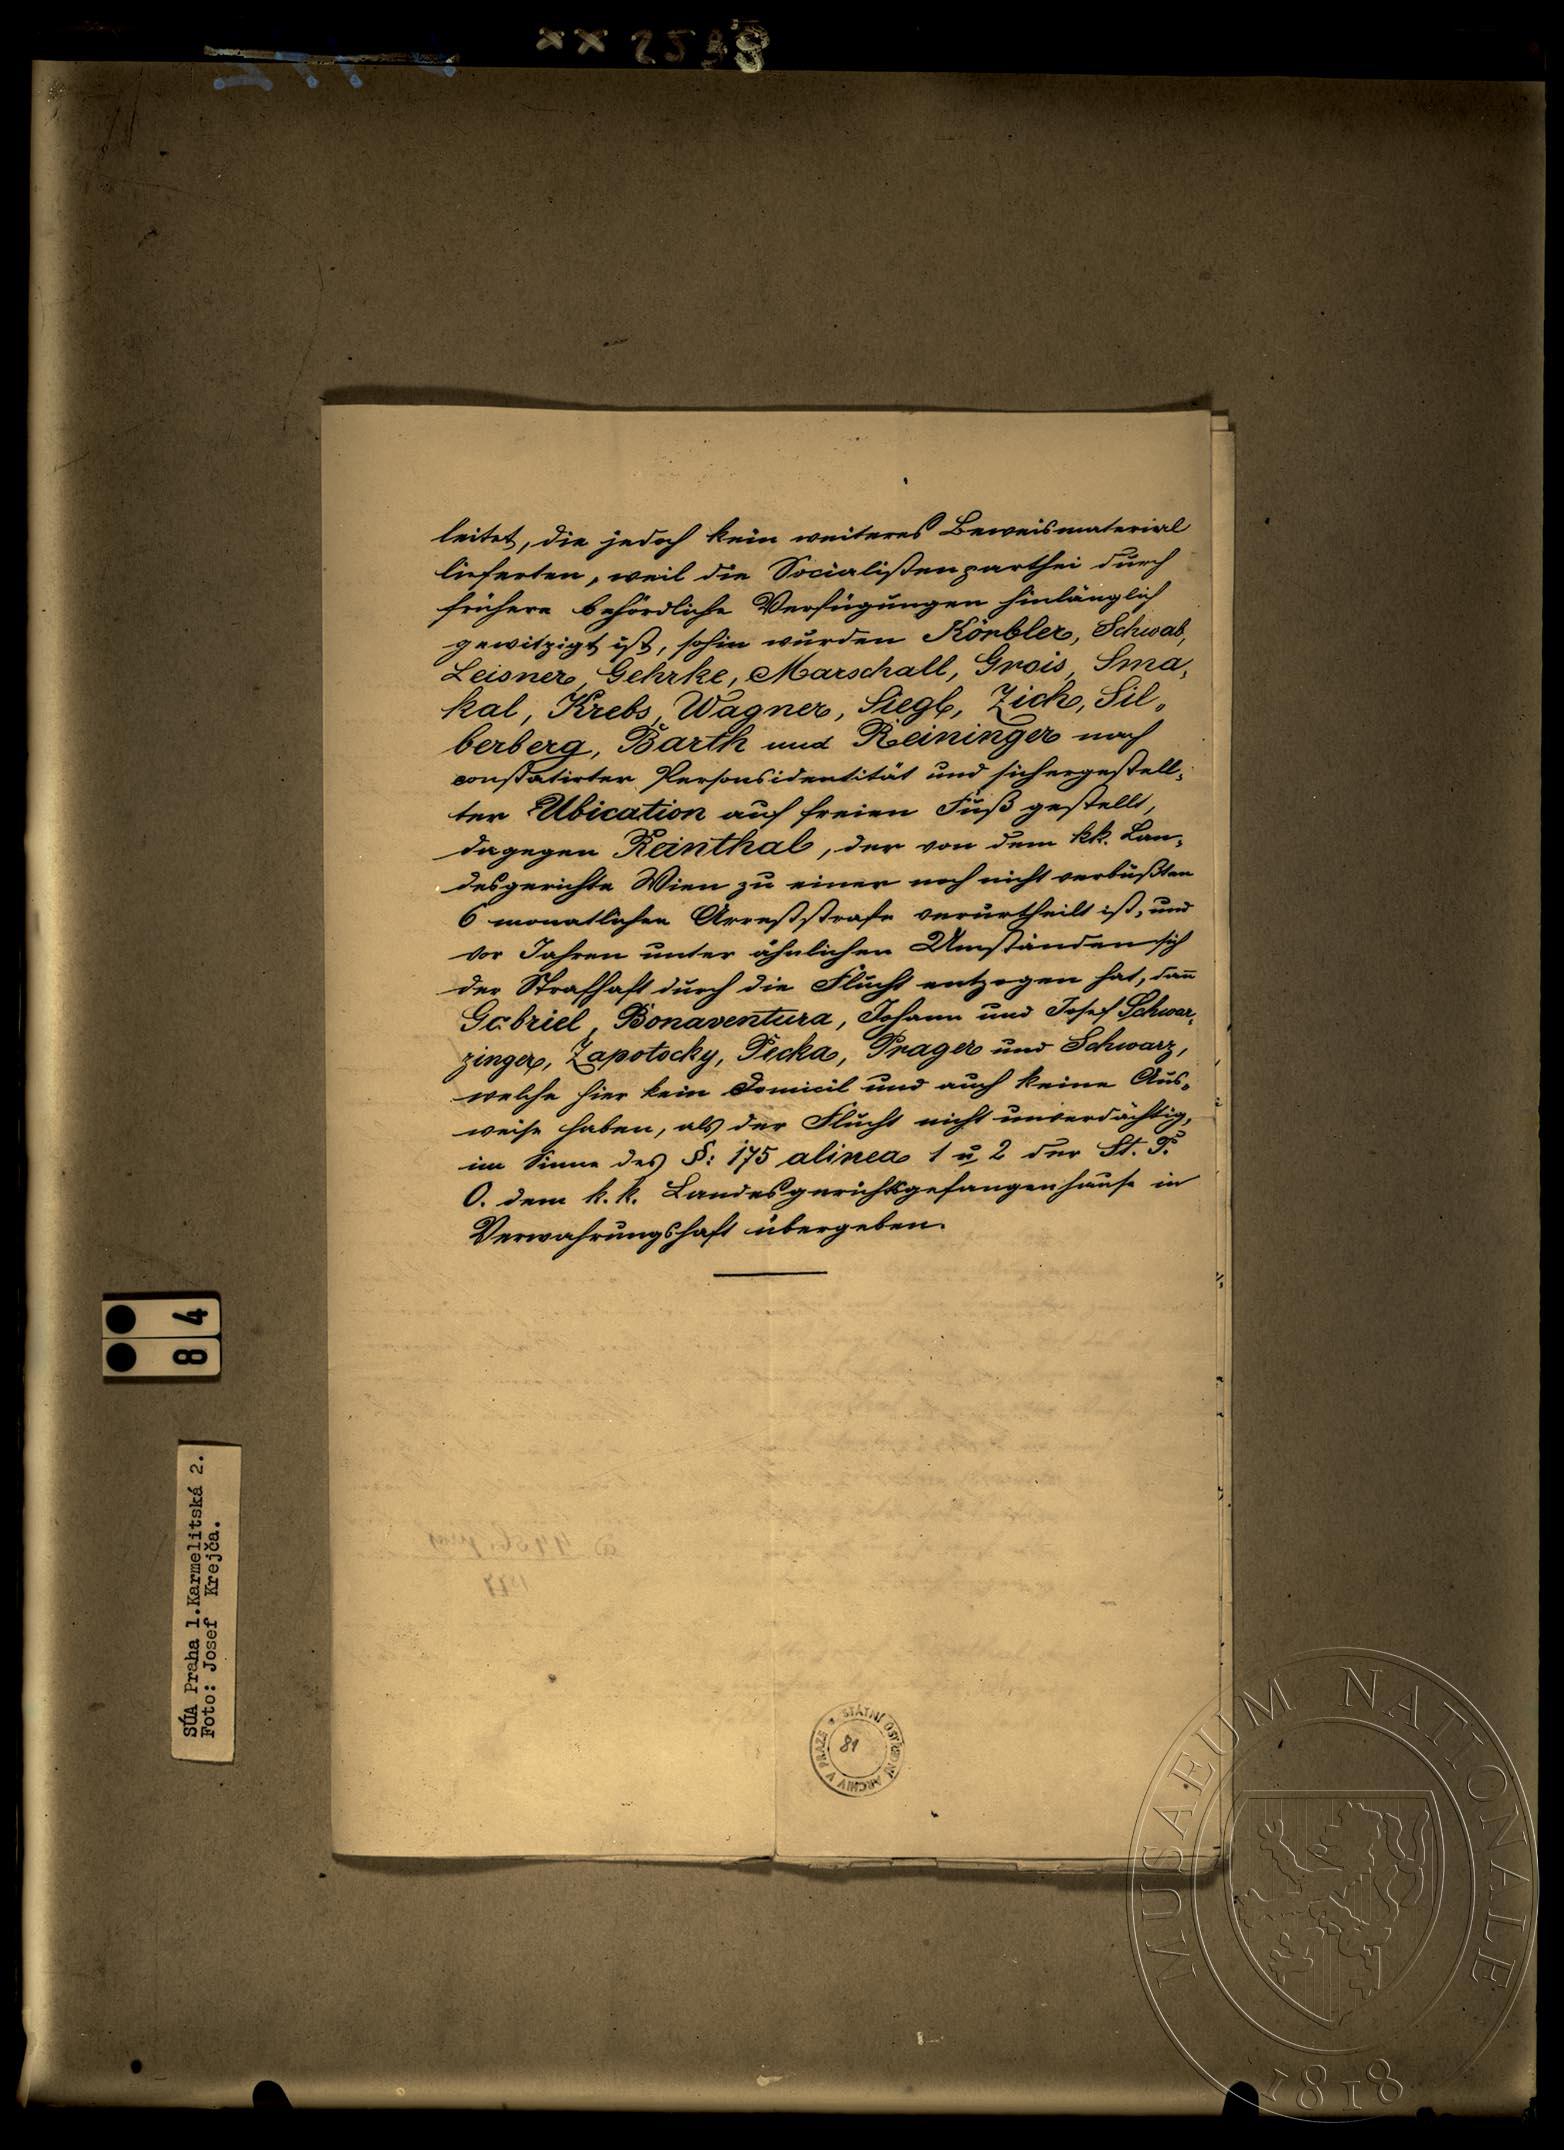 XX 2238
leitet, die jedoch kein weiteres Beweismaterial
lieferten, weil die Socialistenparthei durch
frühere behördliche Verfügungen hinlänglich
gewitzigt ist, sohin wurden Körbler, Schwab,
Leisner, Gehrke, Marschall, Grois, Sma-
kal, Krebs, Wagner, Siegl, Zich, Sil-
berberg, Barth und Reininger nach
constatirter Personsidentität und sichergestell-
ter Ubication auf freien Fuß gestellt,
dagegen Reinthal, der von dem kk. Lan-
desgerichte Wien zu einer noch nicht verbüßten
6 monatlichen Arreststrafe verurtheilt ist, und
vor Jahren unter ähnlichen Umständen sich
der Strafhaft durch die Flucht entzogen hat, dañ
Gabriel, Bonaventura, Johann und Josef Schwar-
zinger, Zapotocky, Pecka, Prager und Schwarz,
welche hier kein Domicil und auch keine Aus-
weise haben, als der Flucht nicht unverdächtig,
im Sinne des §: 175 alinea 1 u 2 der St. P.
O. dem k. k. Landesgerichtsgefangenhause in
Verwahrungshaft übergeben.
84
SÚA Praha 1.Karmelitská 2.
Foto: Josef Krejča.
STÁTNÍ ÚSTŘEDNÍ ARCHIV V PRAZE
81
MUSAEUM NATIONALE
1818